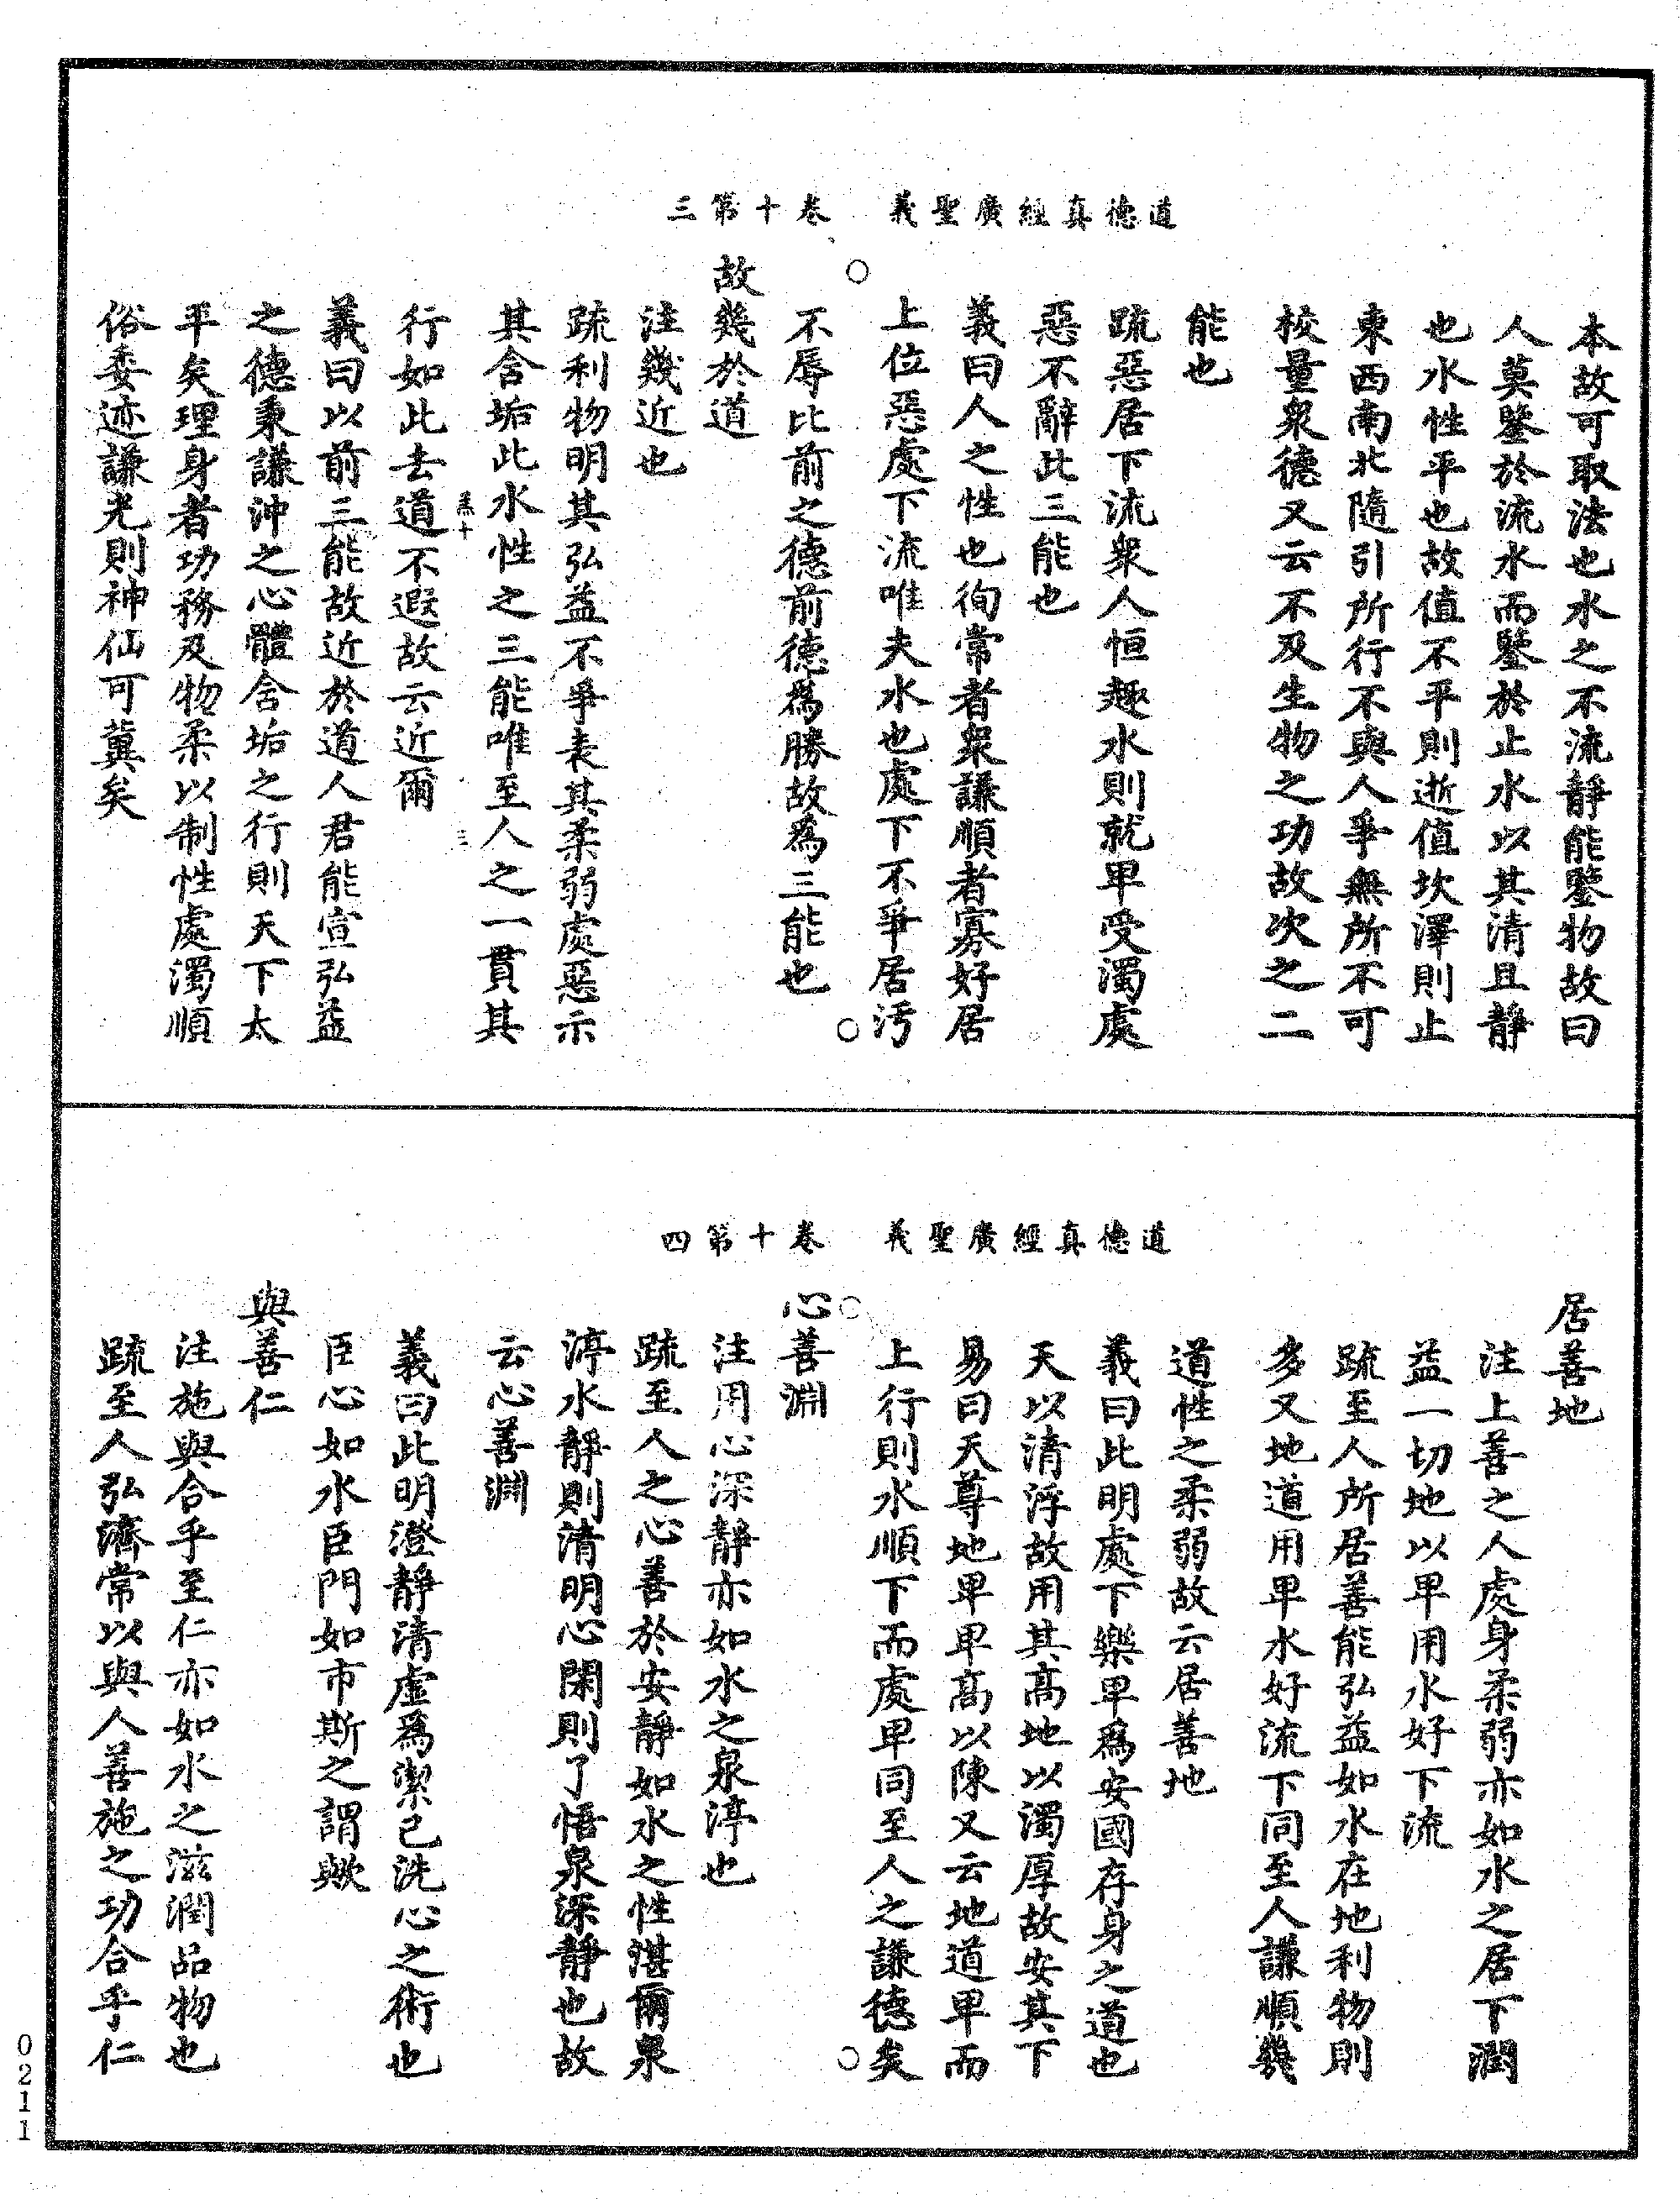 道德真經廣聖義　卷十第三
本故可取法也水之不流靜能鑒物故曰
人莫鑒於流水而鑒於止水以其清且靜
也水性平也故值不平則逝值坎澤則止
東西南北隨引所行不與人爭無所不可
校量衆德又云不及生物之功故次之二
能也
疏惡居下流衆人恒趣水則就卑受濁處
惡不辭此三能也
義曰人之性也徇常者衆謙順者寡好居
上位惡處下流唯夫水也處下不爭居污
不辱比前之德前德爲勝故爲三能也
故幾於道
注幾近也
疏利物明其弘益不爭表其柔弱處惡示
其含垢此水性之三能唯至人之一貫其
行如此去道不遐故云近爾
義曰以前三能故近於道人君能宣弘益
之德秉謙沖之心體含垢之行則天下太
平矣理身者功務及物柔以制性處濁順
俗委迹謙光則神仙可冀矣
道德真經廣聖義　卷十第四
居善地
注上善之人處身柔弱亦如水之居下潤
益一切地以卑用水好下流
疏至人所居善能弘益如水在地利物則
多又地道用卑水好流下同至人謙順幾
道性之柔弱故云居善地
義曰此明處下樂卑爲安國存身之道也
天以清浮故用其高地以濁厚故安其下
易曰天尊地卑卑高以陳又云地道卑而
上行則水順下而處卑同至人之謙德矣
心善淵
注用心深靜亦如水之泉渟也
疏至人之心善於安靜如水之性湛爾泉
渟水靜則清明心閑則了悟泉深靜也故
云心善淵
義曰此明澄靜清虛爲潔己洗心之術也
臣心如水臣門如市斯之謂歟
與善仁
注施與合乎至仁亦如水之滋潤品物也
疏至人弘濟常以與人善施之功合乎仁
0211